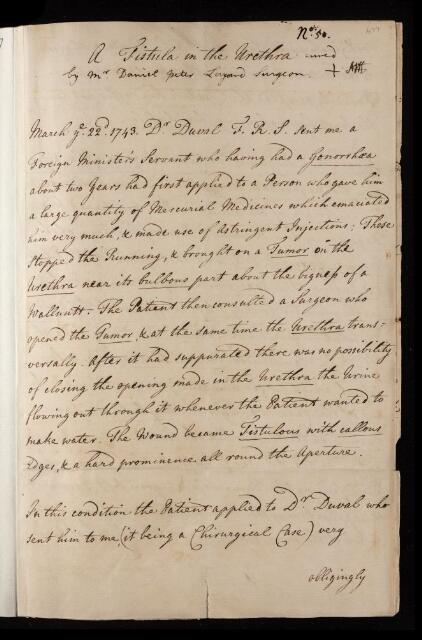 No. 50.
A Fistula in the Urethra cured
by Mr Daniel Peter Layard Surgeon. +
March ye 22d. 1743. Dr Duval F. R. S. sent me a
Foreign Minister's Servant who having had a Gonorrhœa
about two Years had first applied to a Person who gave him
a large quantity of Mercurial Medicines which emaciated
him very much, & made use of Astringent Injections; These
stopped the Running, & brought on a Tumor in the
Urethra near its bulbous part about the bigness of a
Wallnutt. The Patient then consulted a Surgeon who
opened the Tumor, & at the same time the Urethra trans=
versally. After it had suppurated there was no possibility
of closing the opening made in the Urethra the Urine
flowing out through it whenever the Patient wanted to
make water. The Wound became Fistulous with callous
Edges, & a hard prominence all round the Aperture.
In this condition the Patient applied to Dr Duval who
sent him to me, (it being a Chirurgical Case) very
obligingly